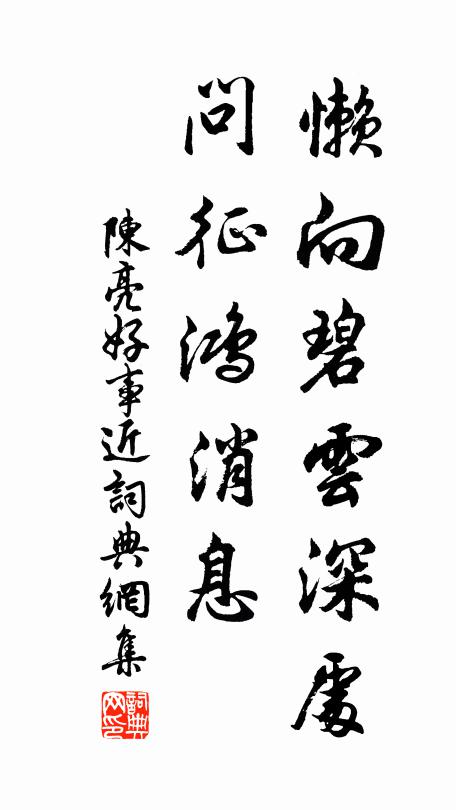 懶向碧雲深處
問征鴻消息
陳亮好事近詞典網集
詞典網印